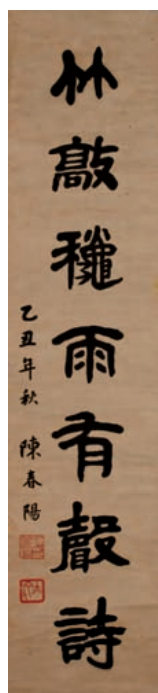 竹敲龝雨有聲詩
乙丑年秋 陳春陽